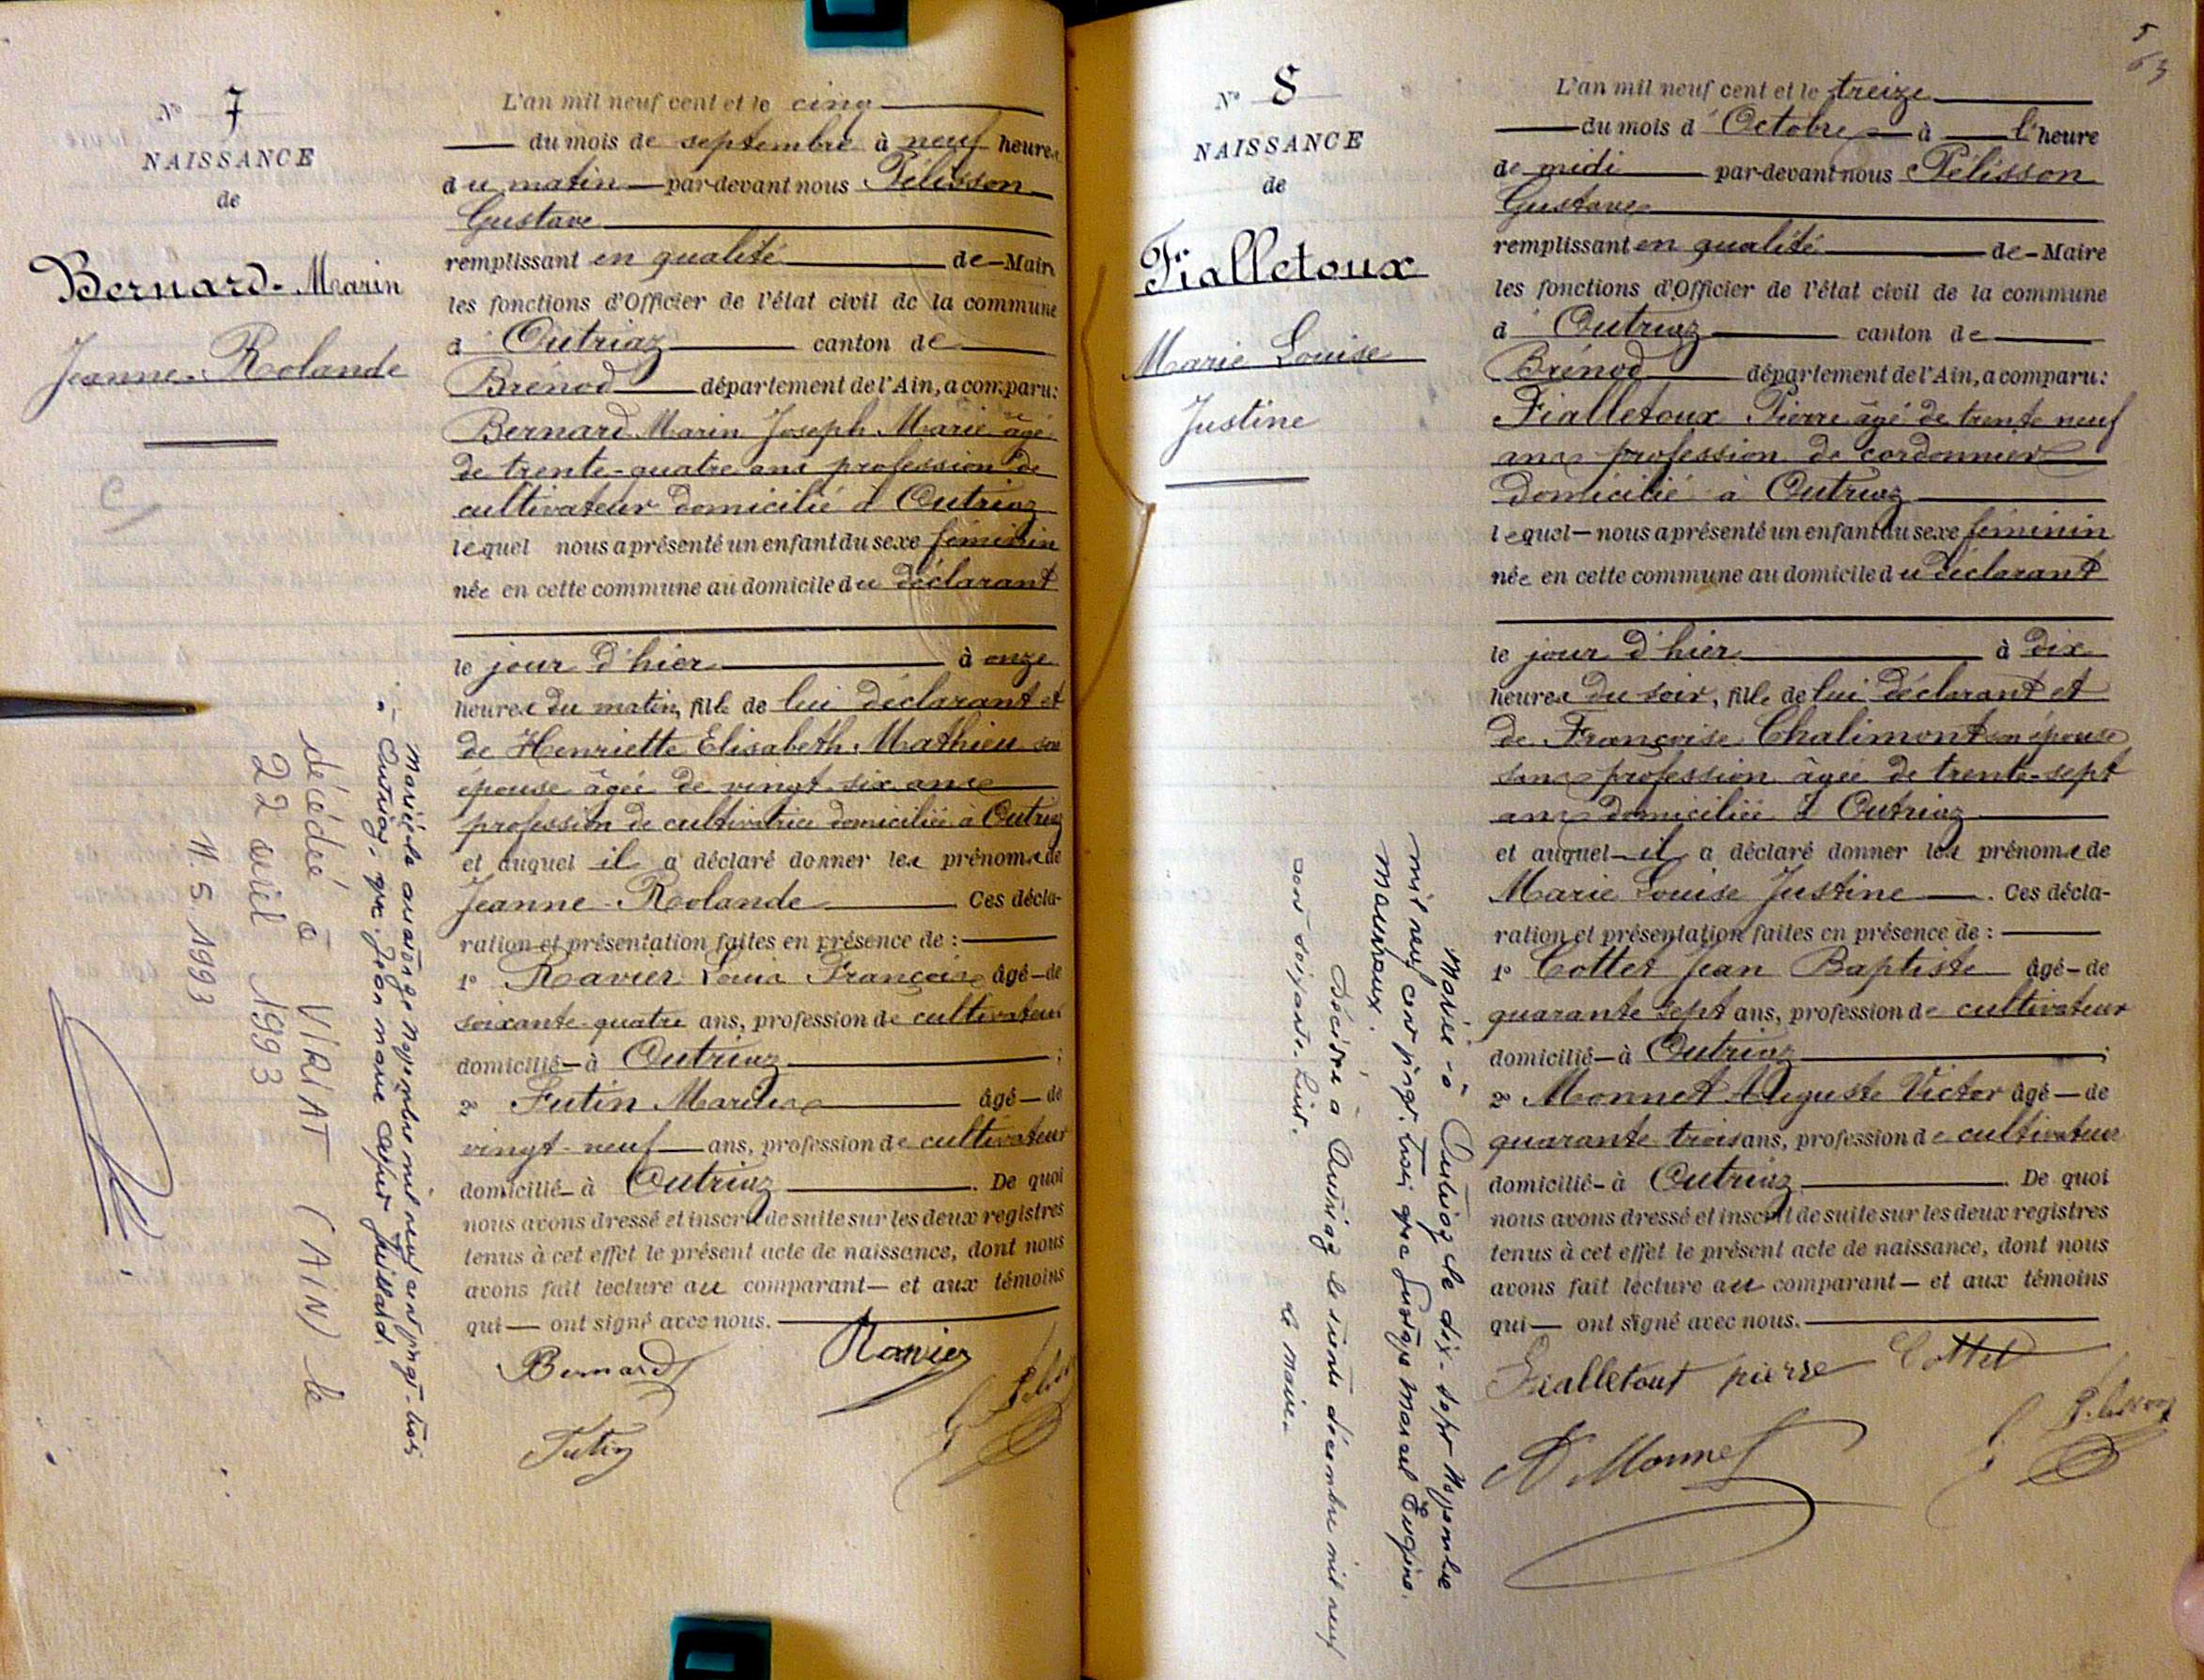 N° 7
NAISSANCE
de
Bernard-Marin
Jeanne-Rolande
L'an mil neuf cent et le cinq
du mois de septembre à neuf heures
du matin par-devant nous Pélisson
Gustave
remplissant en qualité de Maire
les fonctions d'Officier de l'état civil de la commune
d' Outriaz canton de
Brénod département de l'Ain, a comparu:
Bernard Marin Joseph Marie âgé
de trente-quatre ans profession de
cultivateur domicilié à Outriaz
lequel nous a présenté un enfant du sexe féminin
née en cette commune au domicile du déclarant
le jour d'hier à onze
heures du matin, fille de lui déclarant et
de Henriette Elisabeth Mathieu son
épouse âgée de vingt six ans
profession de cultivatrice domiciliée à Outriaz
et auquel il a déclaré donner les prénoms de
Jeanne-Rolande Ces décla-
ration et présentation faites en présence de :
1° Ravier Louis François âgé de
soixante-quatre ans, profession de cultivateur
domicilié à Outriaz ;
2° Tutin Marius âgé de
vingt-neuf ans, profession de cultivateur
domicilié à Outriaz . De quoi
nous avons dressé et inscrit de suite sur les deux registres
tenus à cet effet le présent acte de naissance, dont nous
avons fait lecture au comparant et aux témoins
qui ont signé avec nous.
Bernard Ravier
Tutin
Mariée le mil neuf cent vingt-trois
à Outriaz, avec Jean Marie Juillard.
décédée à VIRIAT (AIN) le
22 avril 1993
11.5.1993
5
63
N° 8
NAISSANCE
de
Fialletoux
Marie Louise
Justine
L'an mil neuf cent et le treize
du mois d' Octobre à l'heure
de midi par-devant nous Pélisson
Gustave
remplissant en qualité de Maire
les fonctions d'Officier de l'état civil de la commune
d' Outriaz canton de
Brénod département de l'Ain, a comparu:
Fialletoux Pierre âgé de trente neuf
ans profession de cordonnier
domicilié à Outriaz
lequel nous a présenté un enfant du sexe féminin
née en cette commune au domicile du déclarant
le jour d'hier à dix
heures du soir, fille de lui déclarant et
de Françoise Chalimont son épouse
sans profession âgée de trente-sept
ans domiciliée à Outriaz
et auquel il a déclaré donner les prénoms de
Marie Louise Justine . Ces décla-
ration et présentation faites en présence de :
1° Cottet Jean Baptiste âgé de
quarante sept ans, profession de cultivateur
domicilié à Outriaz ;
2° Monnet Auguste Victor âgé de
quarante trois ans, profession de cultivateur
domicilié à Outriaz . De quoi
nous avons dressé et inscrit de suite sur les deux registres
tenus à cet effet le présent acte de naissance, dont nous
avons fait lecture au comparant et aux témoins
qui ont signé avec nous.
Fialletout pierre Cottet
A Monnet G. Pélisson
Mariée à Outriaz le dix-sept Novembre
mil neuf cent vingt-trois avec Gustave Marcel Eugène
Décédée à Outriaz le trente décembre mil neuf
cent soixante-huit.
Le maire